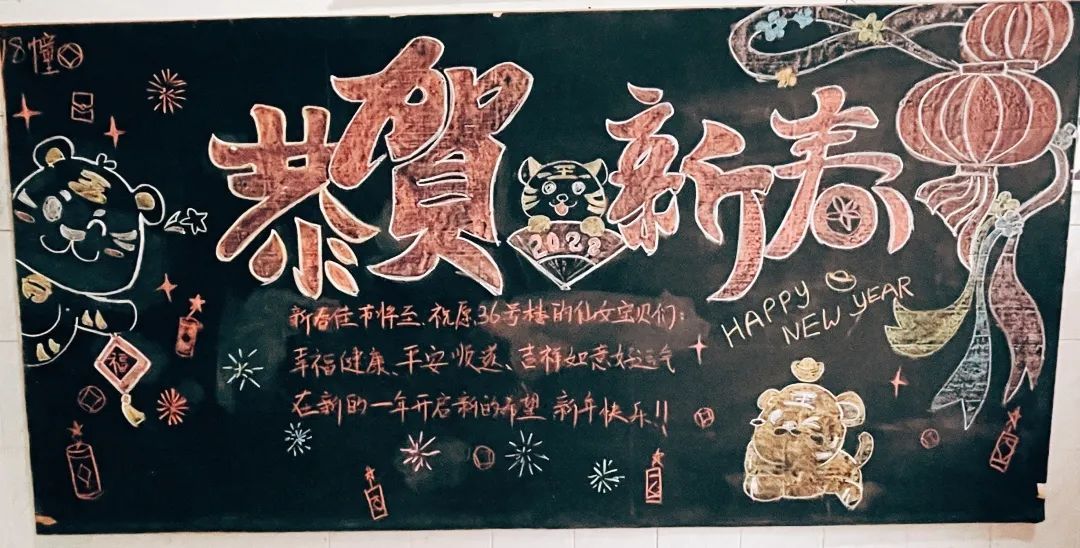 18幢
恭賀新春
2022
新春佳节将至、祝愿36号楼的仙女宝贝们:
幸福健康、平安顺遂、吉祥如意好运气
在新的一年开启新的希望 新年快乐!!
HAPPY
NEW YEAR
福